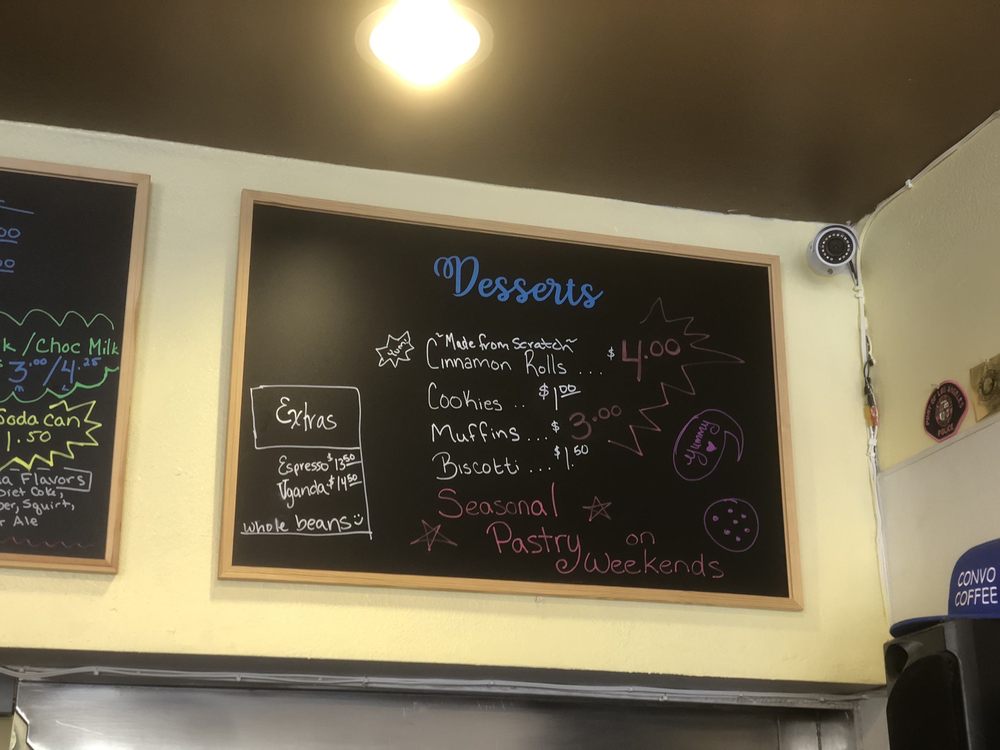 00
00
k/Choc Milk
3.00/4.25
m L
Soda can
1.50
a Flavors
Diet Coke,
per, Squirt,
r Ale
Desserts
Yum!
~Made from scratch~
Cinnamon Rolls ... $4.00
Cookies .. $1.00
Muffins... $3.00
Biscotti ... $1.50
Yummy
Seasonal
Pastry on
Weekends
Extras
Espresso $13.50
Uganda $14.50
whole beans
POLICE
CONVO
COFFEE